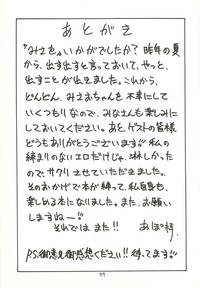 あとがき
"みさき"いかがでしたか？昨年の夏
から、出す出すと言っておいて、やっと、
出すことが出来ました。これから、
どんどん、みさおちゃんを不幸にして
いくつもりなので、みなさんも楽しみに
しておいてください。あと、ゲストの皆様
どうもありがとうございます。私の
締まりのないエロだけじゃ、淋しかった
ので、サクリさせていただきました。
そのおかげで本が締って、私自身も
楽しめる本になりました。また、お願い
しますねー
それでは、また！！
P.S.御意見御感想ください！！待ってます